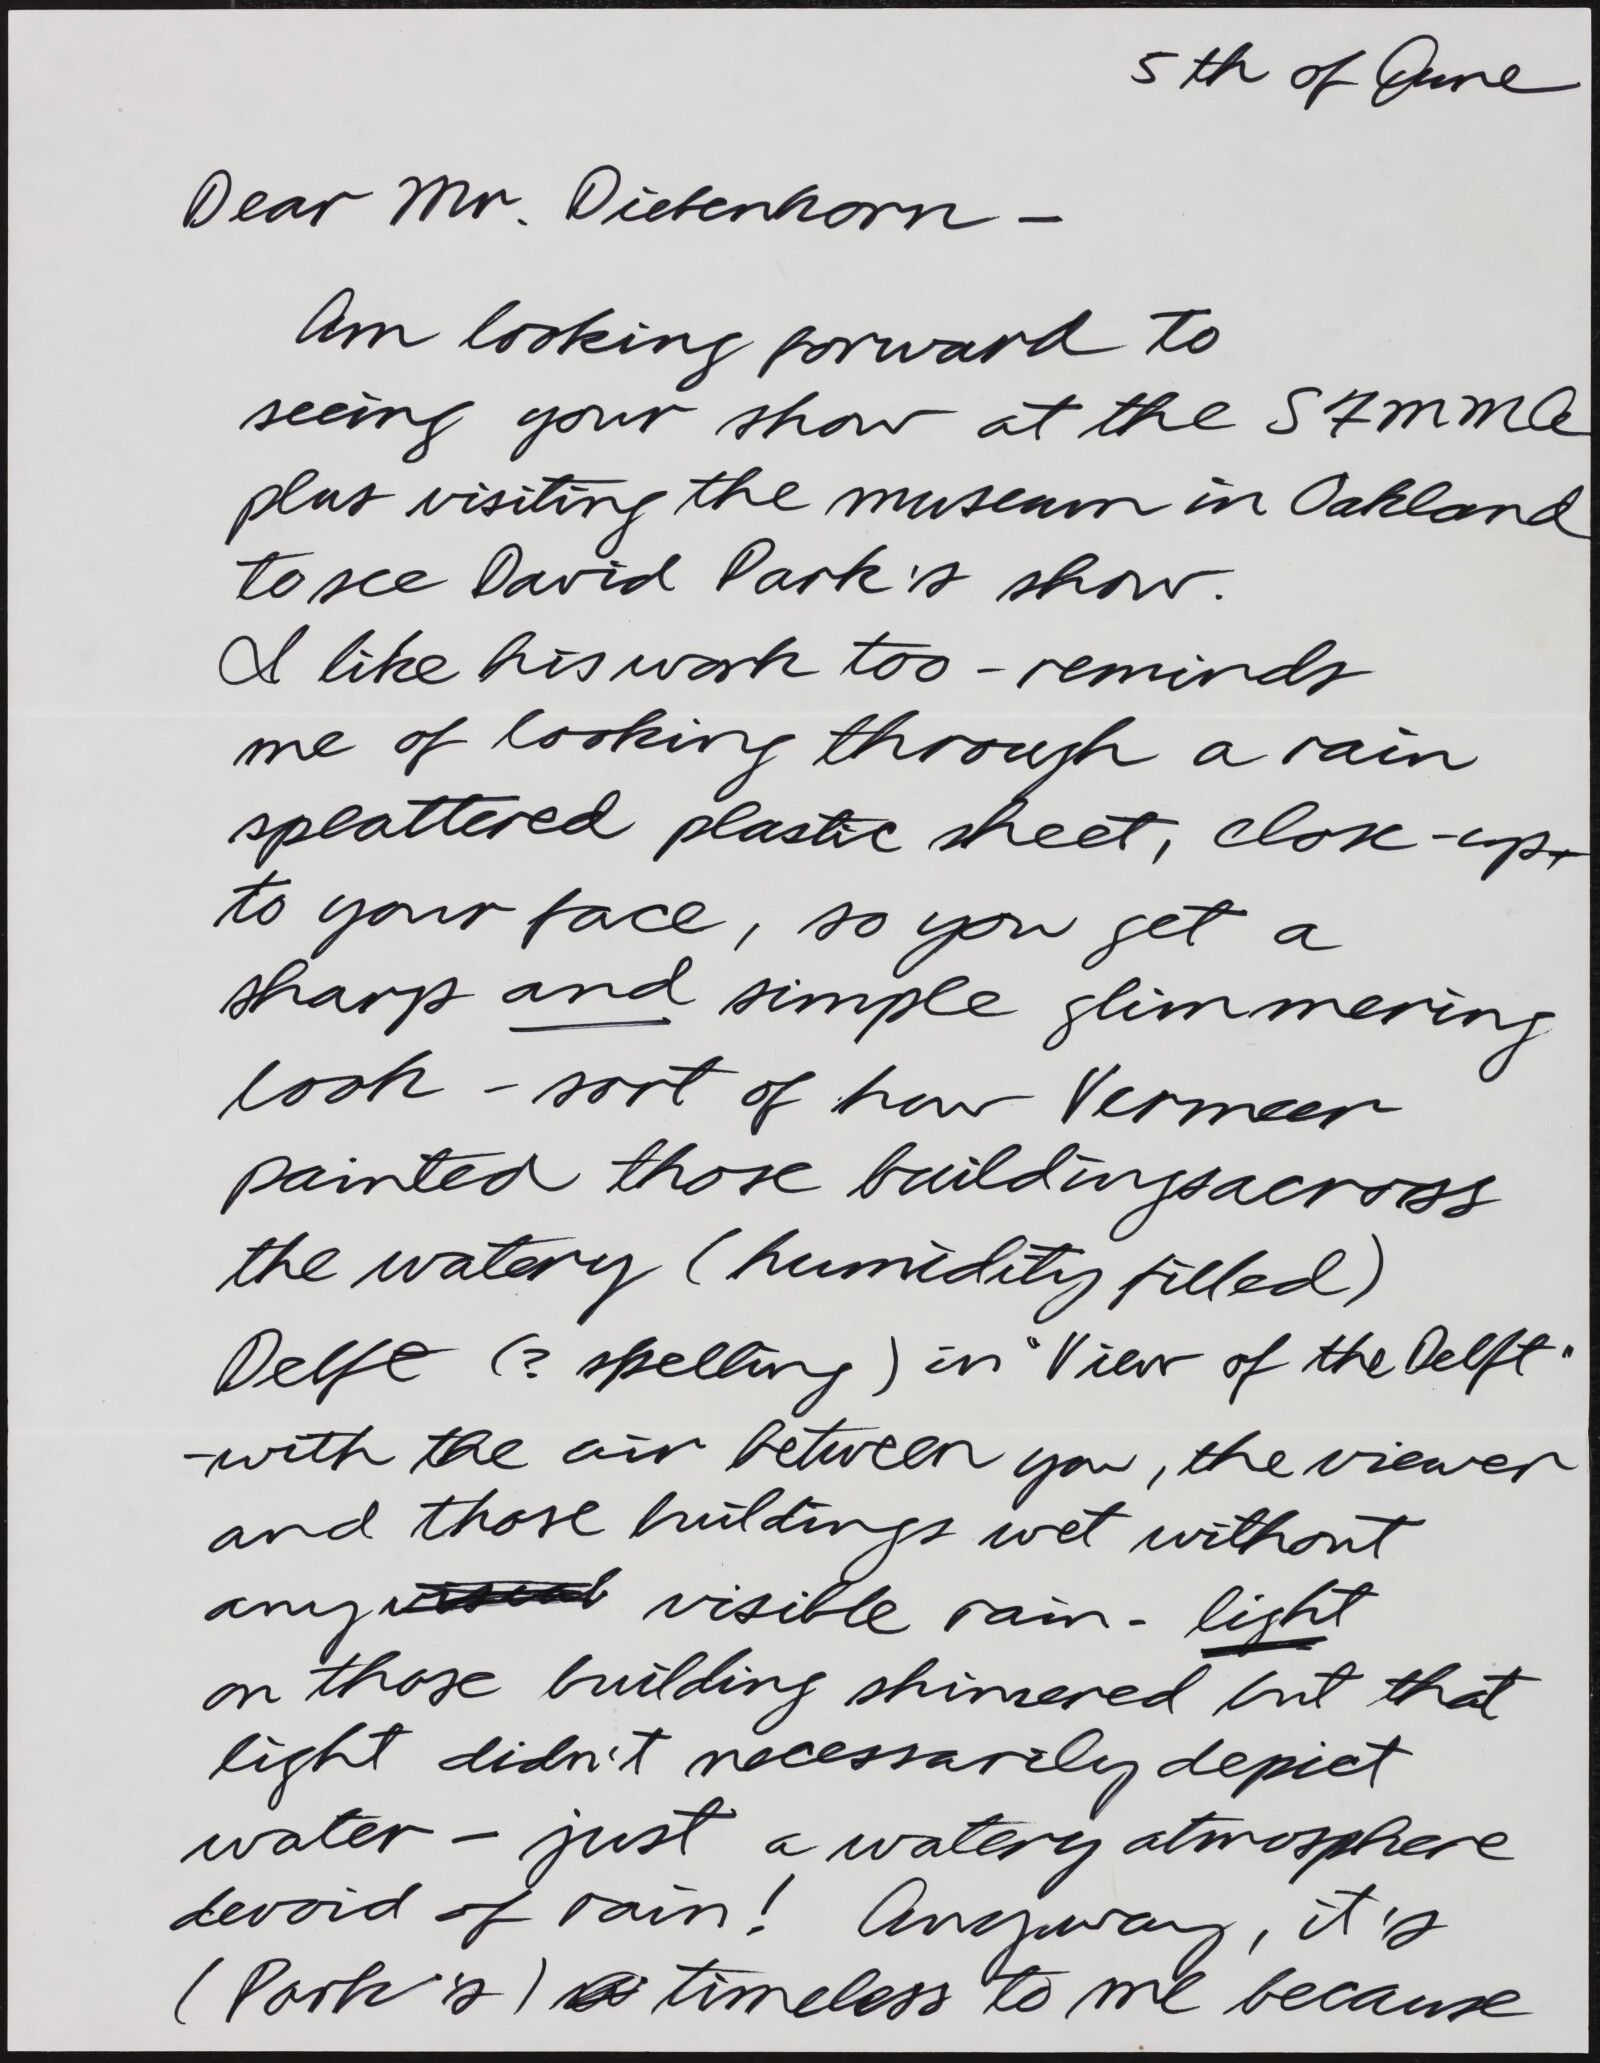 5th of June
Dear Mr. Diebenhorn -
Am looking forward to
seeing your show at the SFMMA
plus visiting the museum in Oakland
to see David Park's show.
I like his work too - reminds
me of looking through a rain
splattered plastic sheet, close-up
to your face, so you get a
sharp and simple glimmering
look - sort of how Vermeer
painted those buildings across
the watery (humidity filled)
Delft (? spelling) in "View of the Delft"
-with the air between you, the viewer
and those buildings wet without
any visible rain - light
on those building shimered but that
light didn't necessarily depict
water - just a watery atmosphere
devoid of rain! Anyway, it's
(Park's) timeless to me because